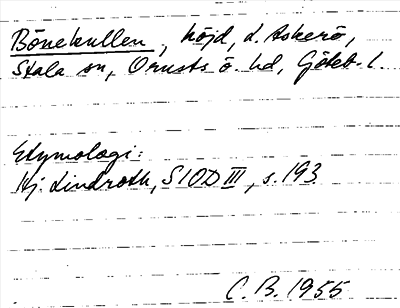 Bönekullen, höjd, L. Askerö,
Stala sn, Orusts ö. hd, Göteb. l.
Etymologi:
Hj. Lindroth, SIOD III, s. 193
C. B. 1955